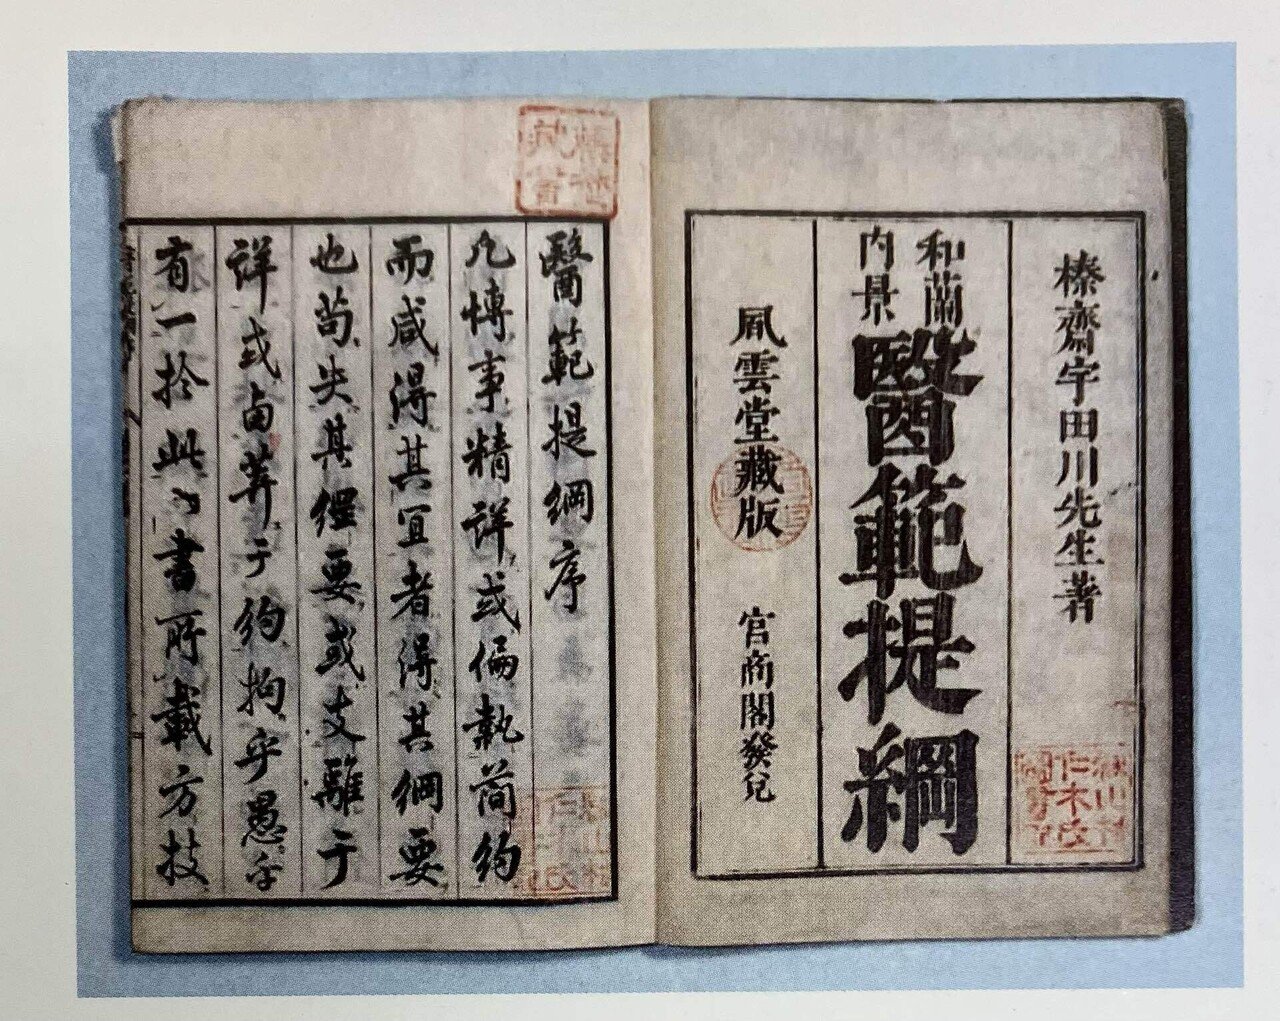 榛齋宇田川先生著
和蘭
内景
醫範提綱
風雲堂藏版
官商閣發兌
醫範提綱序
凡博事精詳或偏執简約
而咸得其宜者得其綱要
也苟失其綱要或支離于
詳或鹵莽于約拘乎愚乎
有一於此書所載方技
藏書